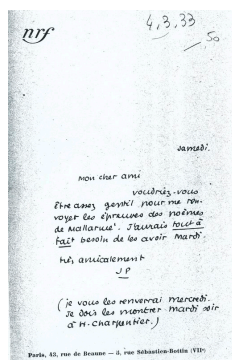 nrf
4.3.33
50
samedi.
mon cher ami
voudriez-vous
être assez gentil pour me ren-
voyer les épreuves des poèmes
de Mallarmé. J'aurais tout à
fait besoin de les avoir mardi.
très amicalement
JP
(je vous les renverrai mercredi.
Je dois les montrer mardi soir
à H. Charpentier.)
Paris, 43, rue de Beaune — 5, rue Sébastien-Bottin (VIIe)